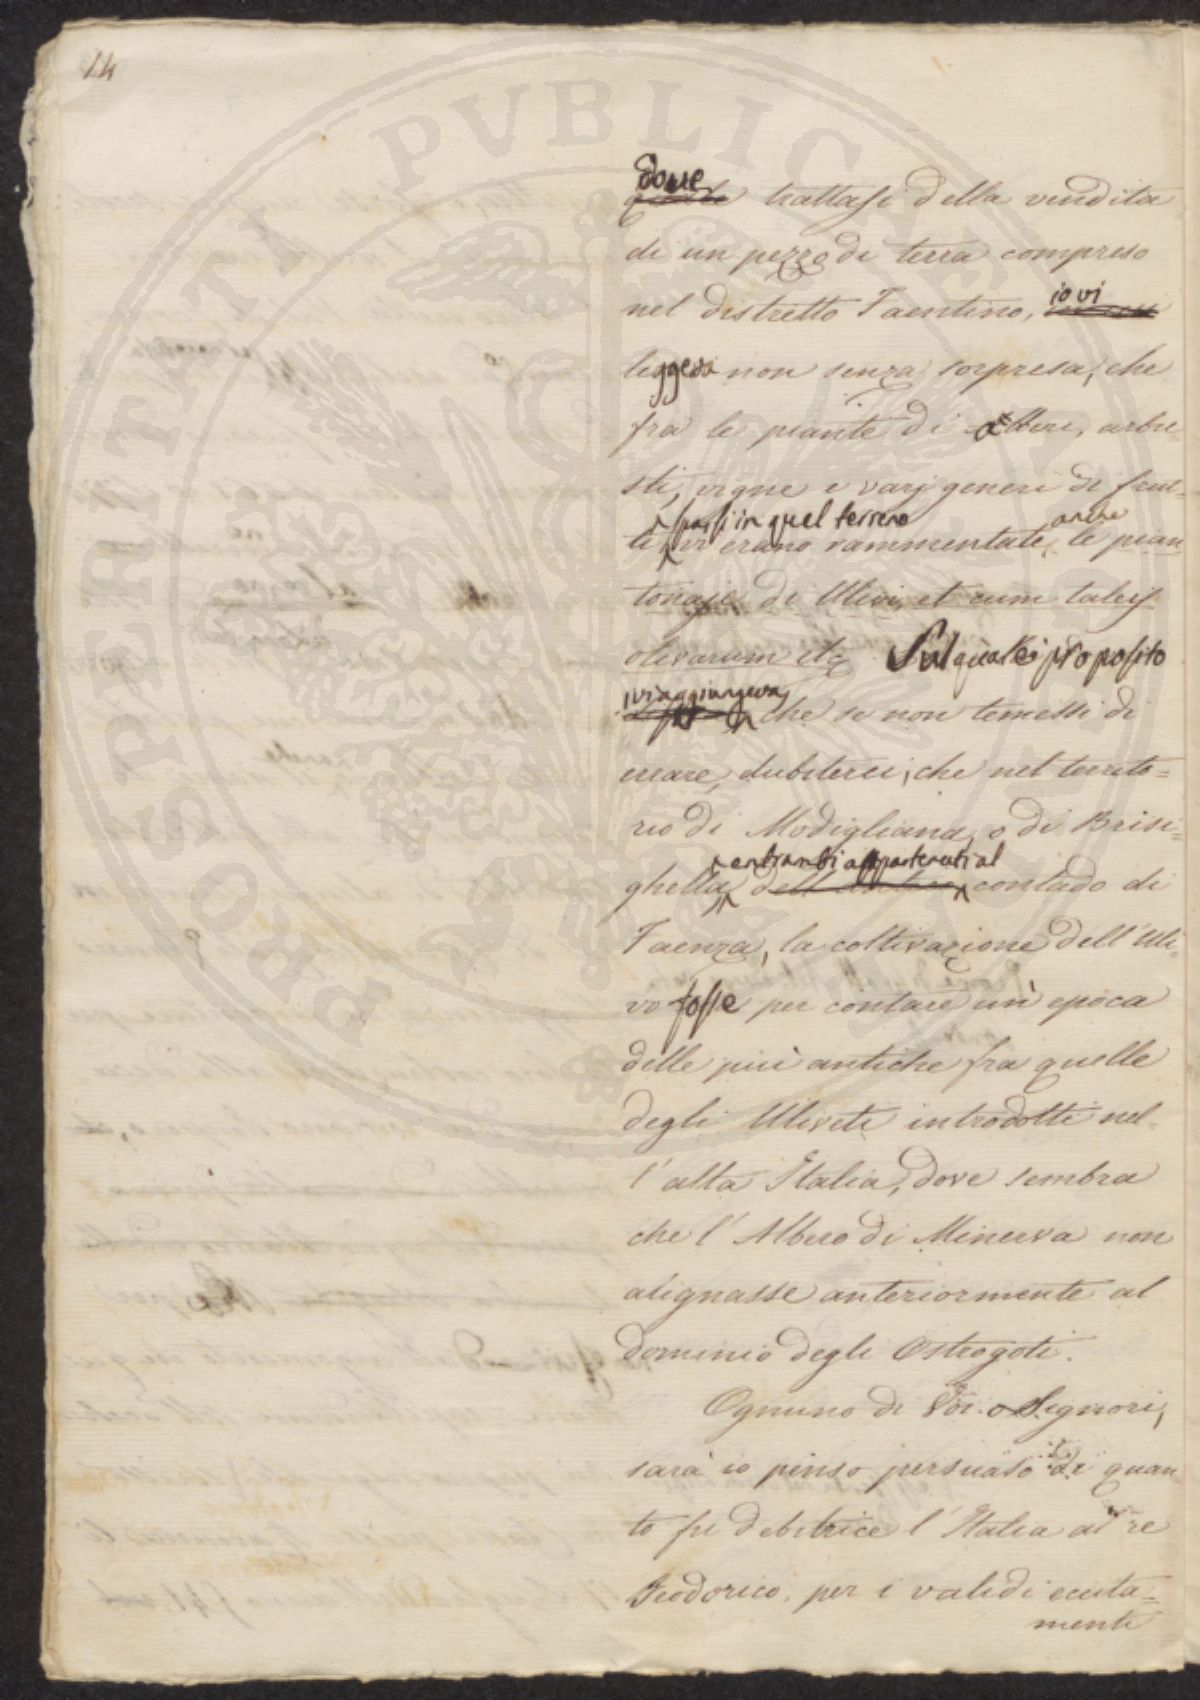 14
dove
trattasi della vendita
di un pezzo di terra compreso
nel distretto Faentino, io vi
leggeva non senza sorpresa, che
fra le piante di alberi, arbu-
sti, vigne e varj generi di frut-
ti, sparsi in quel terreno
vi erano rammentate anche le pian
tonaje di Ulivi, et cum taleis
olivarum etc. Sul quale proposito
ivi aggiungeva, che se non temessi di
errare, dubiterei, che nel territo=
rio di Modigliana, o di Brisi=
ghella, entrambi appartenuti al contado di
Faenza, la coltivazione dell'Uli-
vo fosse per contare un'epoca
delle più antiche fra quelle
degli Uliveti introdotti nel-
l'alta Italia, dove sembra
che l'Albero di Minerva non
alignasse anteriormente al
dominio degli Ostrogoti.
Ognuno di Voi o Signori,
sarà io penso persuaso di quan
to fu debitrice l'Italia al re
Teodorico, per i validi eccita=
menti
PROSPERITATI PVBLICAE